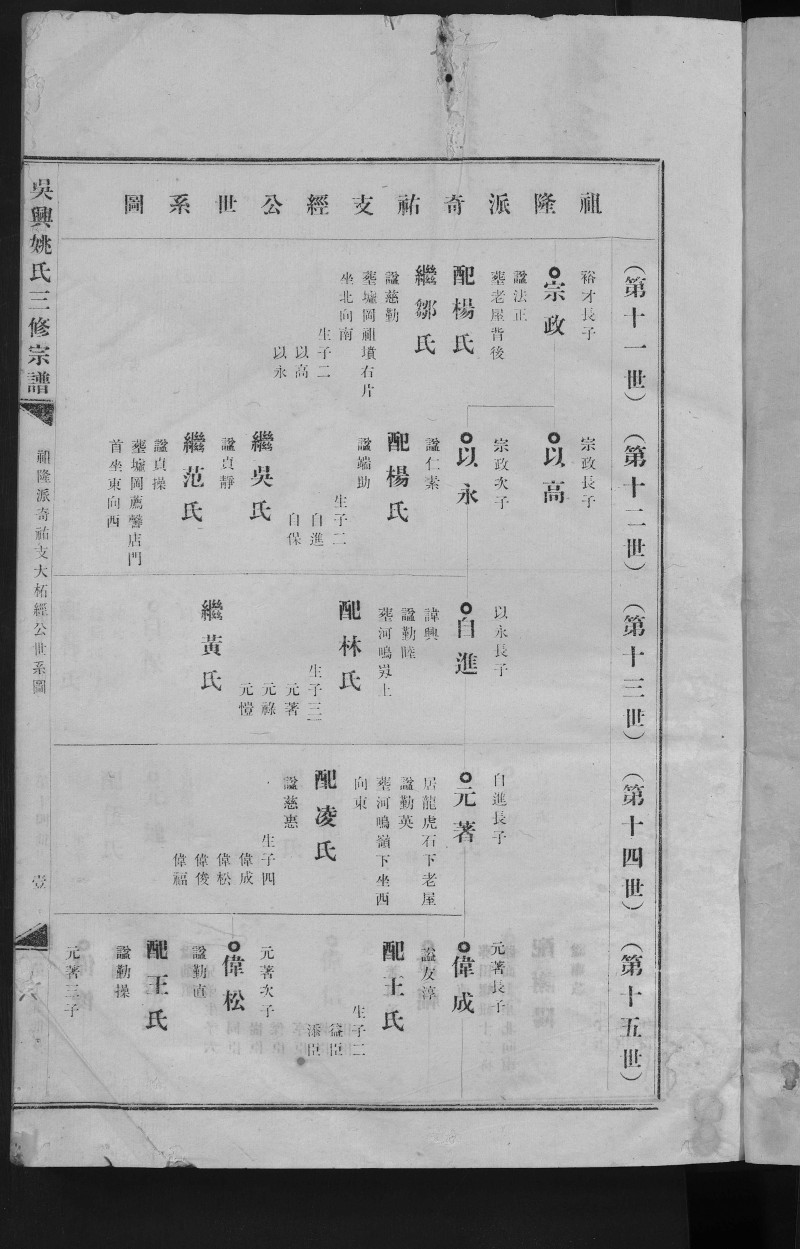 祖隆派奇祐支經公世系圖
（第十一世）
裕才長子
宗政
諡法正
葬老屋背後
配楊氏
繼鄒氏
諡慈勤
葬墟岡祖墳右片
坐北向南
生子二
以高
以永
（第十二世）
宗政長子
以高
宗政次子
以永
諡仁素
配楊氏
諡端助
生子二
自進
自保
繼吳氏
諡貞靜
繼范氏
諡貞操
葬墟岡薦馨店門
首坐東向西
（第十三世）
以永長子
自進
諱興
諡勤睦
葬河鳴㟁上
配林氏
生子三
元著
元祿
元愷
繼黃氏
（第十四世）
自進長子
元著
居龍虎石下老屋
諡勤英
葬河鳴嶺下坐西
向東
配凌氏
諡慈惠
生子四
偉成
偉松
偉俊
偉福
（第十五世）
元著長子
偉成
諡友淳
配王氏
生子二
益臣
添臣
元著次子
偉松
諡勤直
配王氏
諡勤操
元著三子
吳興姚氏三修宗譜
祖隆派奇祐支大柘經公世系圖
壹